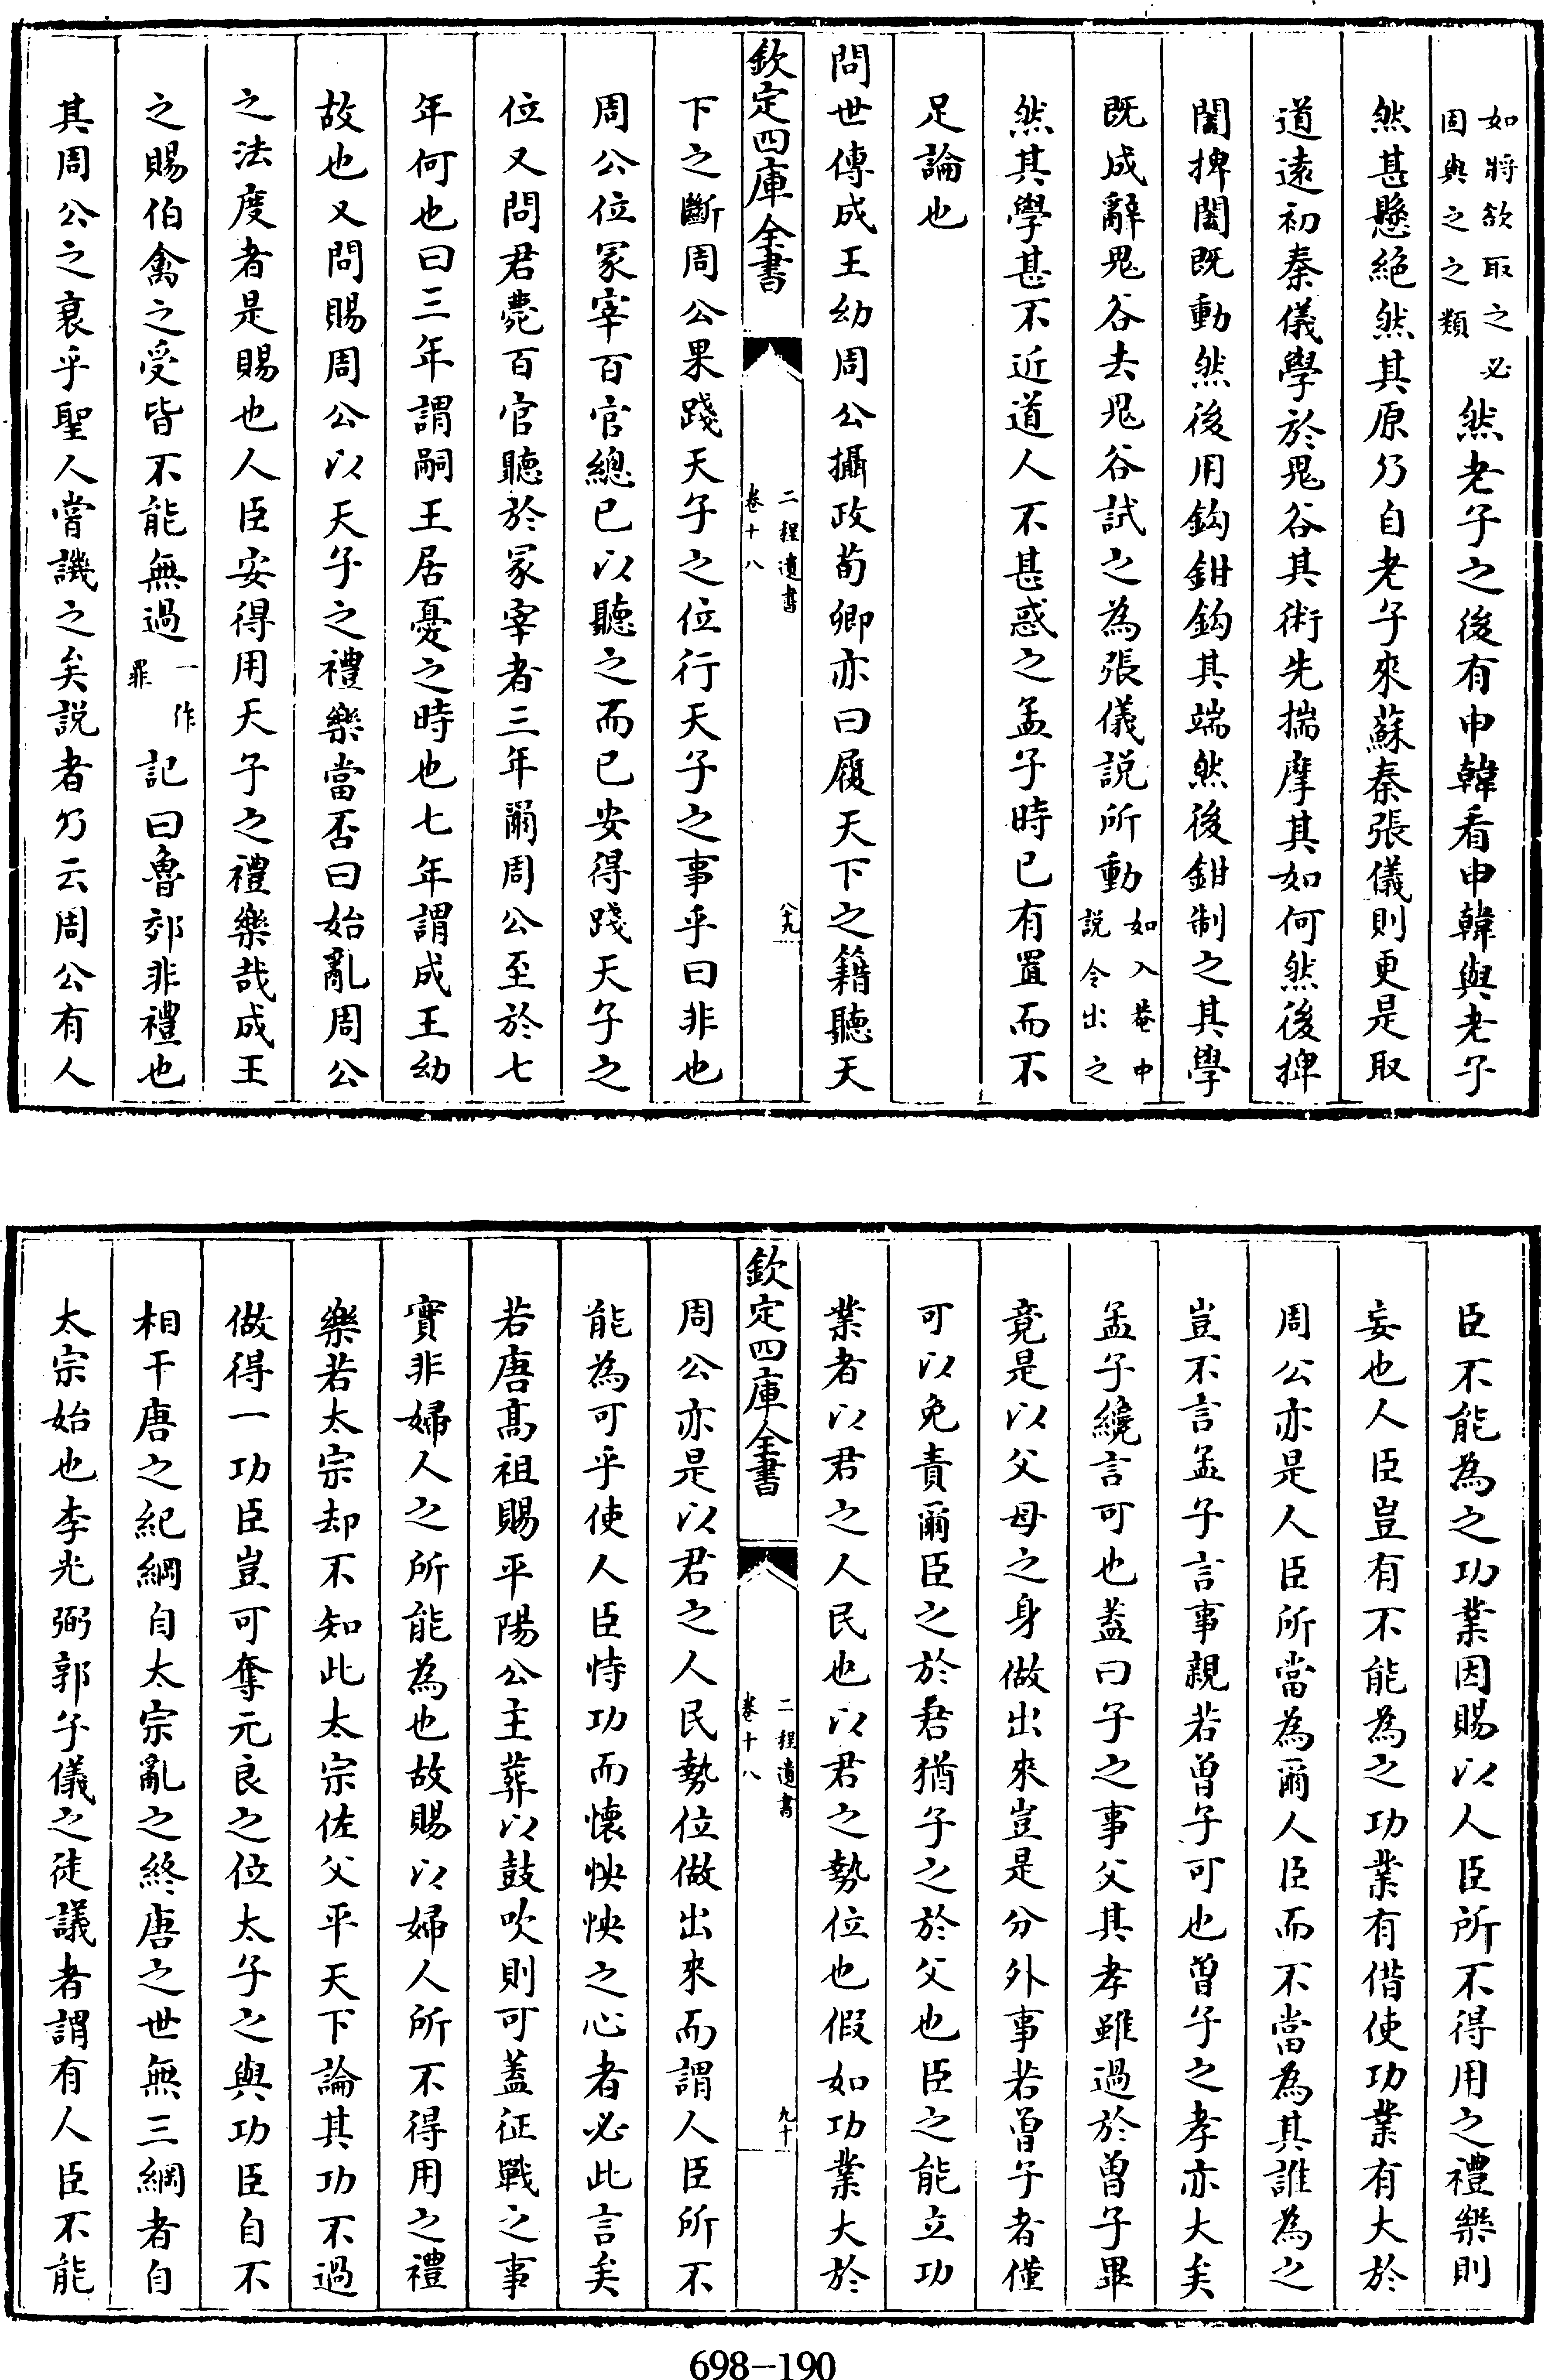 如將欲取之必固與之之類然老子之後有申韓看申韓與老子
然甚懸絕然其原乃自老子來蘇秦張儀則更是取
道遠初秦儀學於鬼谷其術先揣摩其如何然後捭
闔捭闔既動然後用鈎鉗鈎其端然後鉗制之其學
既成辭鬼谷去鬼谷試之為張儀說所動如入菴中說令出之
然其學甚不近道人不甚惑之孟子時已有置而不
足論也
問世傳成王幼周公攝政荀卿亦曰履天下之籍聽天
欽定四庫全書
二程遺書
卷十八
八十九
下之斷周公果踐天子之位行天子之事乎曰非也
周公位冢宰百官總已以聽之而已安得踐天子之
位又問君薨百官聽於冢宰者三年爾周公至於七
年何也曰三年謂嗣王居憂之時也七年謂成王幼
故也又問賜周公以天子之禮樂當否曰始亂周公
之法度者是賜也人臣安得用天子之禮樂哉成王
之賜伯禽之受皆不能無過一作罪記曰魯郊非禮也
其周公之衰乎聖人嘗譏之矣說者乃云周公有人
臣不能為之功業因賜以人臣所不得用之禮樂則
妄也人臣豈有不能為之功業有借使功業有大於
周公亦是人臣所當為爾人臣而不當為其誰為之
豈不言孟子言事親若曾子可也曾子之孝亦大矣
孟子纔言可也蓋曰子之事父其孝雖過於曾子畢
竟是以父母之身做出來豈是分外事若曾子者僅
可以免責爾臣之於君猶子之於父也臣之能立功
業者以君之人民也以君之勢位也假如功業大於
欽定四庫全書
二程遺書
卷十八
九十
周公亦是以君之人民勢位做出來而謂人臣所不
能為可乎使人臣恃功而懷怏怏之心者必此言矣
若唐高祖賜平陽公主葬以鼓吹則可蓋征戰之事
實非婦人之所能為也故賜以婦人所不得用之禮
樂若太宗却不知此太宗佐父平天下論其功不過
做得一功臣豈可奪元良之位太子之與功臣自不
相干唐之紀綱自太宗亂之終唐之世無三綱者自
太宗始也李光弼郭子儀之徒議者謂有人臣不能
698-190